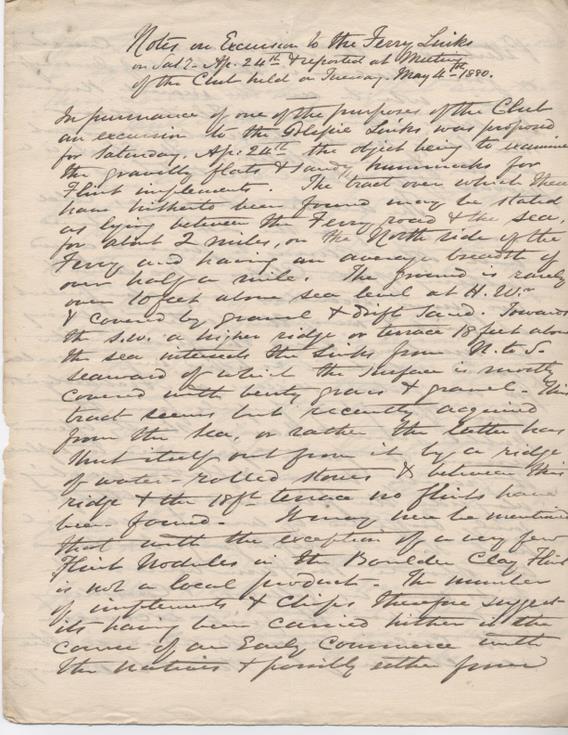 Notes on Excursion to the Ferry Links
on Sat? Ap. 24th & reported at Meeting
of the Club held on Tuesday. May 4th 1880.
In pursuance of one of the purposes of the Club
an excursion to the Links, was proposed
for Saturday, Ap: 24th the object being to examine
the gravilly flats & sandy hummocks for
Flint implements. The tract over which these
have hitherto been found may be stated
as lying between the Ferry road & the sea,
for about 2 miles, on the North side of the
Ferry and having an average breadth of
over half a mile. The ground is rarely
over 10 feet above sea level at H.W.
& covered by gravel & drift Sand. Towards
the S.W. a higher ridge or terrace 18 feet above
the sea intersects the Links from N. to S.
seaward of which the surface is mostly
covered with benty grass & gravel. This
tract seems but recently acquired
from the sea, or rather the latter has
shut itself out from it by a ridge
of water-rolled stones & between this
ridge & the 18ft terrace no flints have
been found. It may here be mentioned
that with the exception of a very few
Flint Nodules in the Boulder Clay Flint
is not a local product - The number
of implements & chips therefore suggest
its having been carried hither in the
course of an Early Commerce with
the natives & possibly either from